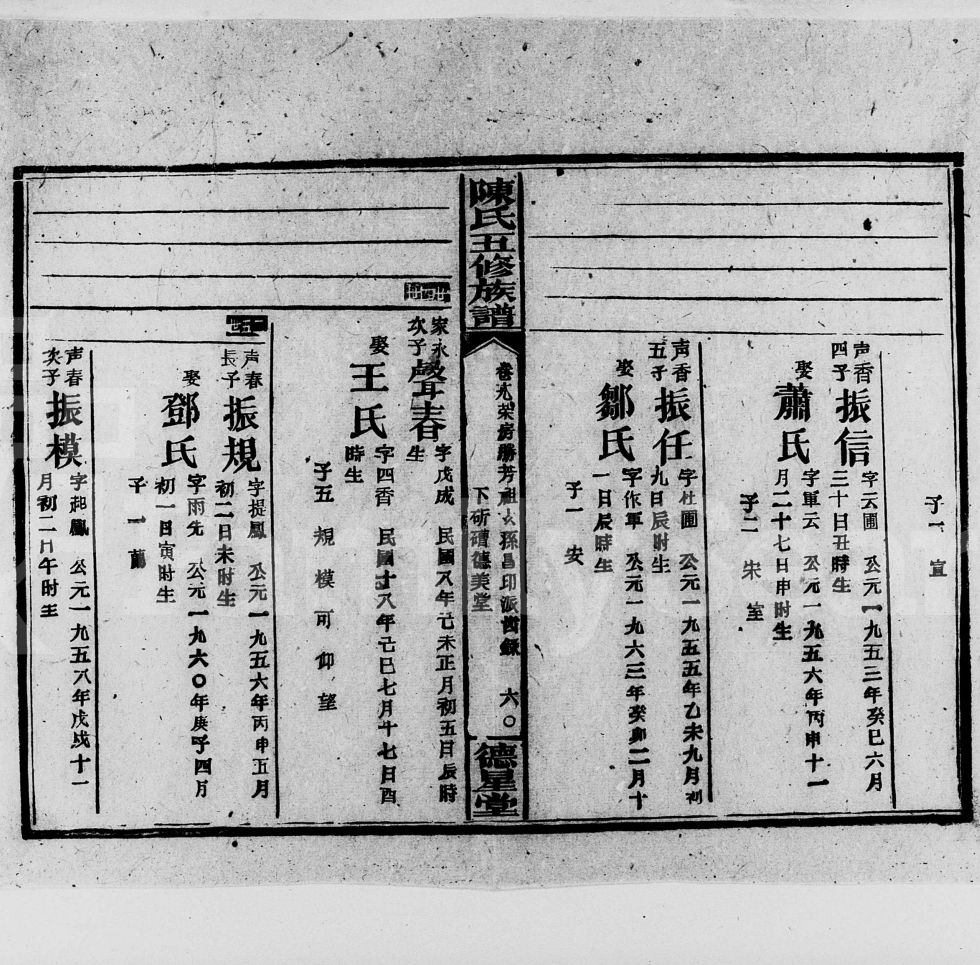 子一 宣
声香
四子
振信
字云圃 公元一九五三年癸巳六月
三十日丑時生
娶
蕭氏
字軍云 公元一九五六年丙申十一
月二十七日申时生
子二 朱 室
声香
五子
振任
字杜圃 公元一九五五年乙未九月初
九日辰时生
娶
鄒氏
字作軍 公元一九六三年癸卯二月十
一日辰時生
子一 安
陳氏五修族譜
卷九荣房勝芳祖玄孫昌印派齿錄 六〇
下斫磳德美堂
德星堂
家永
次子
聲春
字戊成 民國八年己未正月初五日辰時
生
娶
王氏
字四香 民國十八年己巳七月十七日酉
時生
子五 規 模 可 仰 望
声春
長子
振規
字提鳳 公元一九五六年丙申五月
初二日未时生
娶
鄧氏
字雨先 公元一九六〇年庚子四月
初一日寅时生
子一
声春
次子
振模
字起鳳 公元一九五八年戊戍十一
月初二日午时生